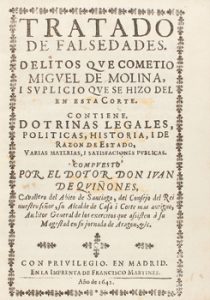 TRATADO
DE FALSEDADES.
DELITOS QUE COMETIO
MIGVEL DE MOLINA,
I SVPLICIO QUE SE HIZO DEL
EN ESTA CORTE.
CONTIENE
DOTRINAS LEGALES,
POLITICAS, HISTORIA, I DE
RAZON DE ESTADO,
VARIAS MATERIAS, I SATISFACIONES PVBLICAS.
COMPVESTO
POR EL DOTOR DON IVAN
DE QVIÑONES,
Cavallero del Abito de Santiago, del Consejo del Rei
nuestro señor, su Alcalde de Casa i Corte mas antiguo,
Auditor General de los exercitos que asisten á su
Magestad en su jornada de Aragon, &c.
CON PRIVILEGIO. EN MADRID.
EN LA IMPRENTA DE FRANCISCO MARTINEZ.
Año de 1642.